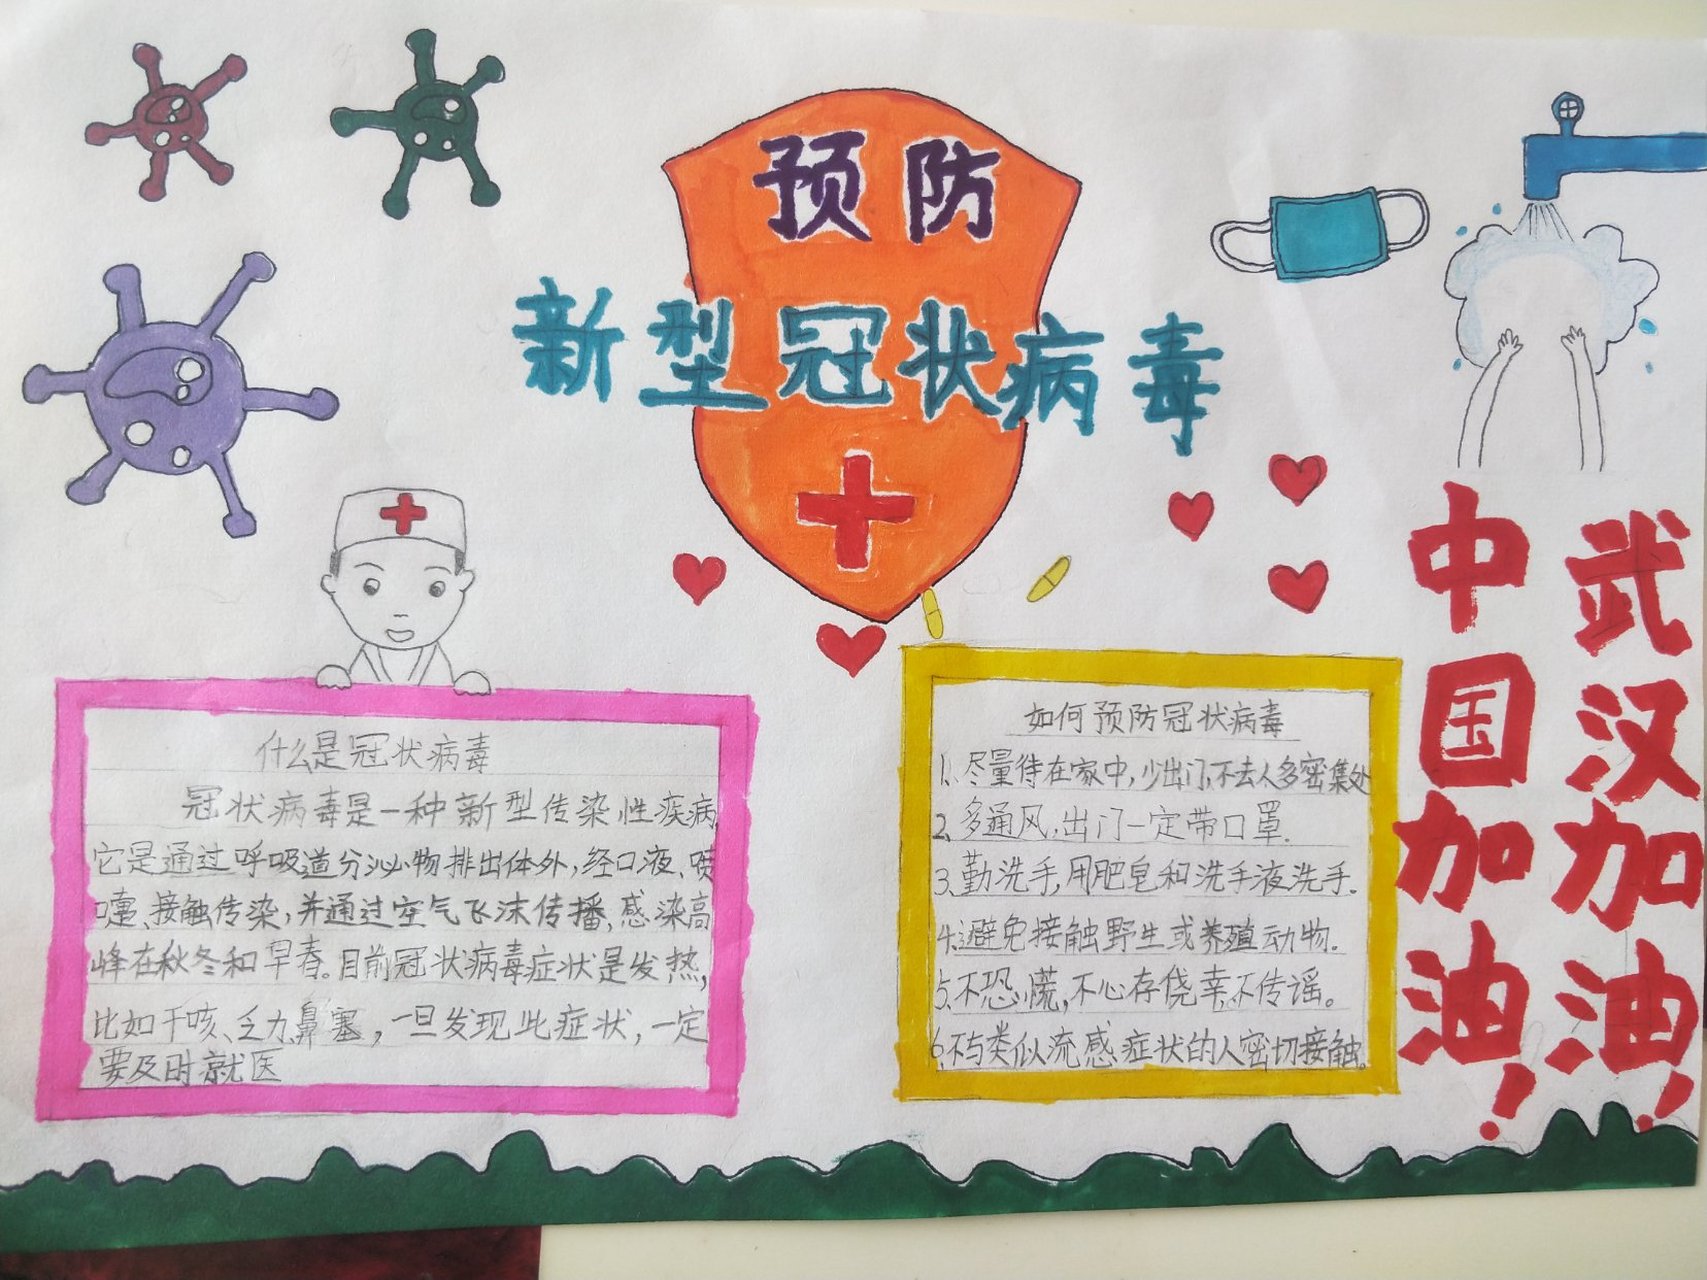 预防
新型冠状病毒
什么是冠状病毒
冠状病毒是一种新型传染性疾病
它是通过呼吸道分泌物排出体外,经口液、喷
嚏、接触传染,并通过空气飞沫传播,感染高
峰在秋冬和早春。目前冠状病毒症状是发热,
比如干咳、乏力、鼻塞,一旦发现此症状,一定
要及时就医
如何预防冠状病毒
1、尽量待在家中,少出门,不去人多密集处
2、多通风,出门一定带口罩.
3、勤洗手,用肥皂和洗手液洗手.
4、避免接触野生或养殖动物.
5、不恐慌,不心存侥幸,不传谣。
6、不与类似流感症状的人密切接触。
中国加油!
武汉加油!